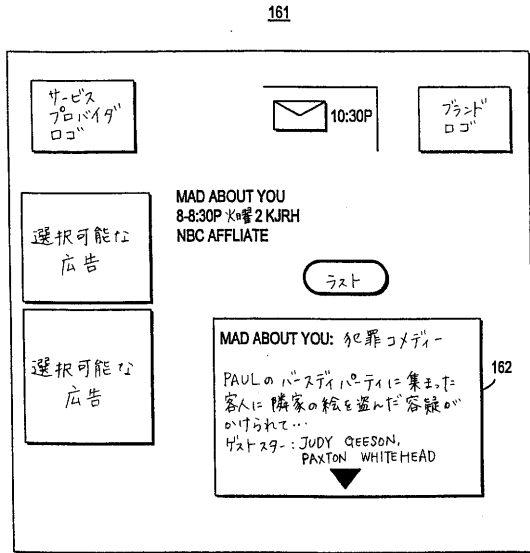 161
サービス
プロバイダ
ロゴ
10:30P
ブランド
ロゴ
選択可能な
広告
MAD ABOUT YOU
8-8:30P 火曜 2 KJRH
NBC AFFLIATE
ラスト
選択可能な
広告
MAD ABOUT YOU: 犯罪コメディー
PAULのバースディパーティに集まった
客人に隣家の絵を盗んだ容疑が
かけられて…
ゲストスター:JUDY GEESON,
PAXTON WHITEHEAD
162